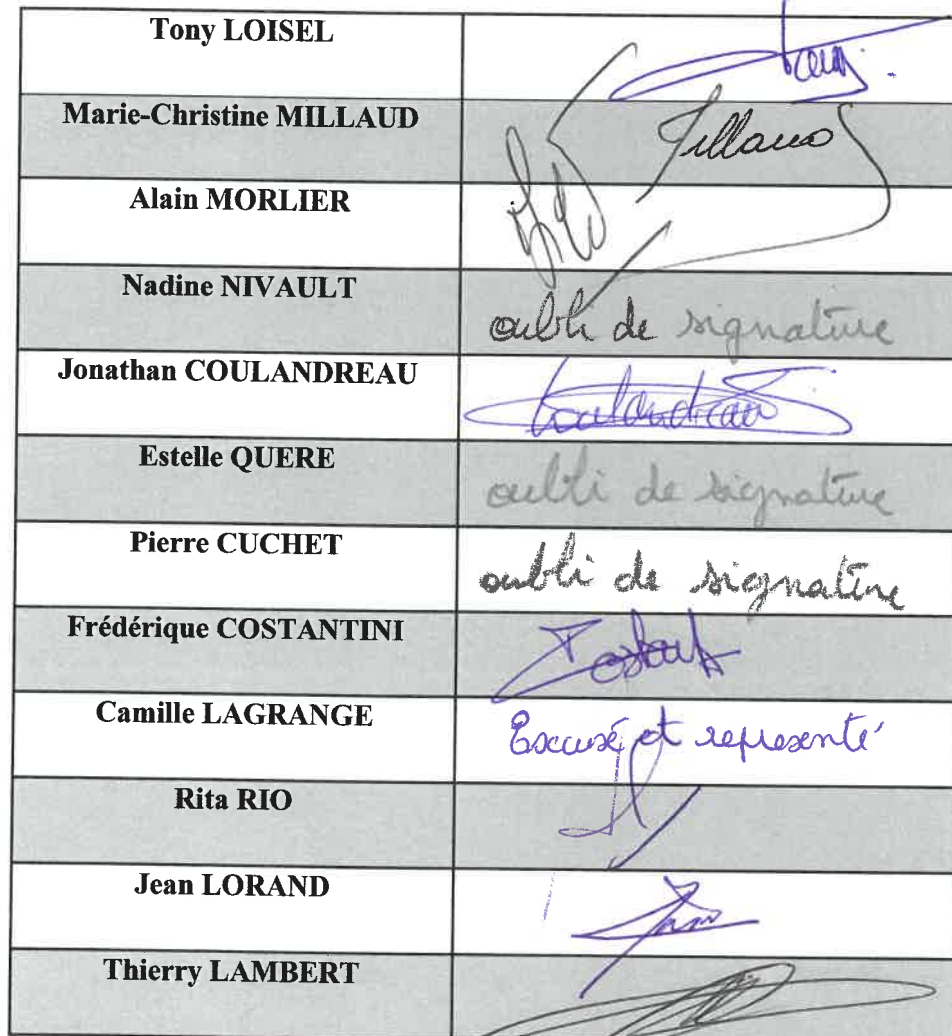 Tony LOISEL
Marie-Christine MILLAUD
Millaud
Alain MORLIER
Nadine NIVAULT
oubli de signature
Jonathan COULANDREAU
Coulandreau
Estelle QUERE
oubli de signature
Pierre CUCHET
oubli de signature
Frédérique COSTANTINI
Camille LAGRANGE
Excusé et representé
Rita RIO
Jean LORAND
Thierry LAMBERT